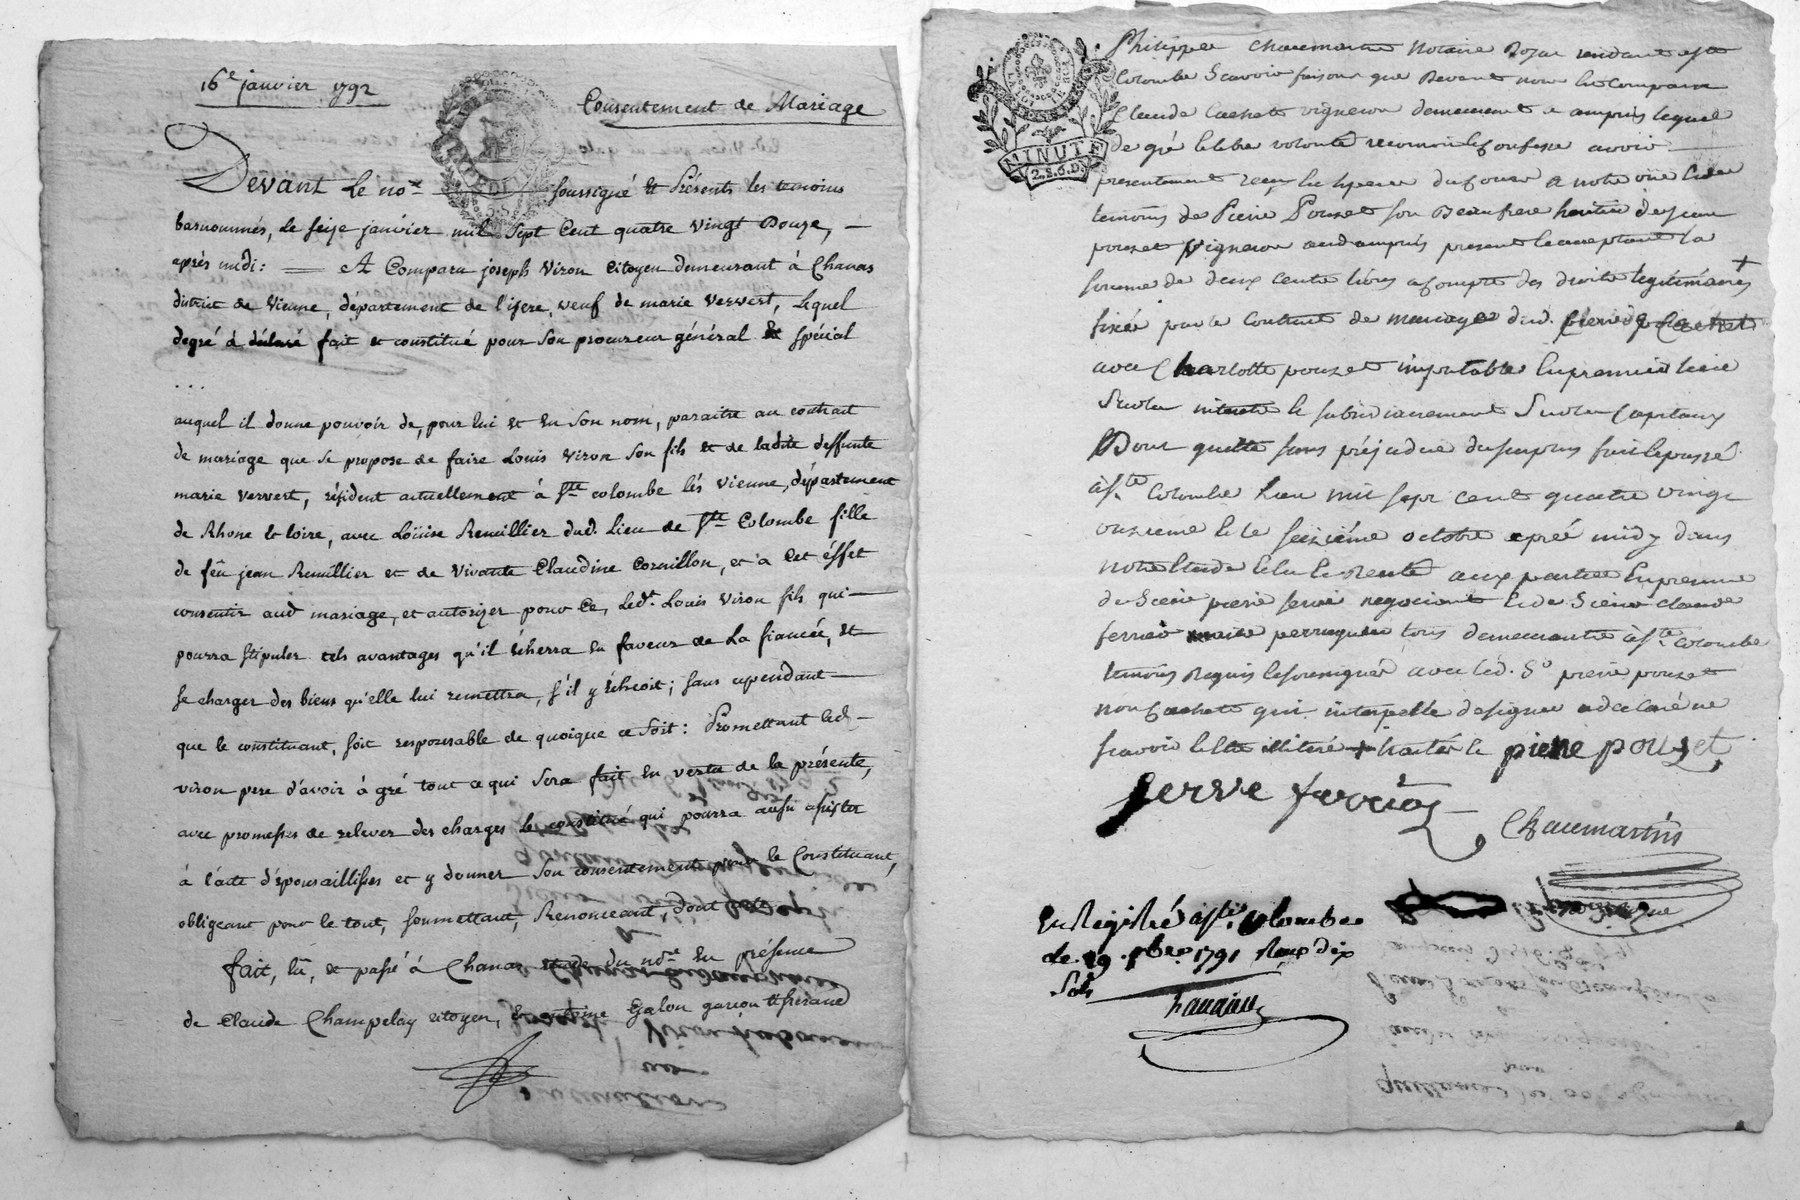 16e janvier 1792
Consentement de Mariage
Devant Le nore soussigné & Présents les temoins
basnommés, le seize janvier mil sept Cent quatre vingt Douze, —
après midi: — A Comparu joseph Viron Citoyen demeurant à Chanas
district de Vienne, département de l'isere, veuf de marie Ververt, Lequel
degré a déclaré fait et constitué pour son procureur général & spécial
...
auquel il donne pouvoir de, pour lui et en son nom, paraitre au contrait
de mariage que se propose de faire Louis Viron son fils et de ladite deffunte
marie ververt, résident actuellement à Ste colombe lès Vienne, département
de Rhone & loire, avec Loüise Remillier dud. Lieu de Ste Colombe fille
de feu jean Remillier et de Vivante Claudine Cornillon, et à cet éffet
consentir aud mariage, et autorizer pour ce, Ledt. Louis Viron fils qui —
pourra stipuler tels avantages qu'il écherra en faveur de La fiancée, et
se charger des biens qu'elle lui remettra, s'il y échoit; sans cependant —
que le constituant, soit responsable de quoique ce soit: Promettant led —
viron pere d'avoir à gré tout ce qui sera fait en vertu de la présente,
avec promesses de relever des charges le constitué qui pourra aussi assister
à l'acte d'épousaillisses et y donner son consentement pour le Constituant,
obligeant pour le tout, soumettant, Renonceant, dont acte
fait, lu, et passé à Chanas etude du nore en présence
de Claude Champelay citoyen, & antoine Galon garçon tisserand
Philippe Chaumartin Notaire Royal
Colombe Scavoir faisons que Devant nous a Comparu
Claude Cachet vigneron demeurant a ampuis lequel
de gré & libre volonté reconnoit & confesse avoir
MINUTE
2.S.6.D.
presentement reçu en especes du cours a notre vüe & des
temoins de Pierre Pouzet son Beaufrere heritier de jean
pouzet vigneron aud ampuis present & acceptant la
somme de deux cents livres acompte des droits legitimaires +
fixés par le Contrat de mariage dud.
avec Charlotte pouzet imputables en premier lieu
sur les interets & subsidiairement sur les Capitaux
Dont quitte sans préjudice du surplus fait & passé
à Ste Colombe L'an mil sept cent quatre vingt
onzieme & le seizième octobre aprés midy dans
notre Etude Lu & Relu aux parties En presence
de Sieur pierre serve negociant & de Sieur claude
ferrier maitre perruquier tous demeurants à Ste Colombe
temoins Requis & soussignés avec led. Sr pierre pouzet
non Cachet qui interpellé de signer a declaré ne
scavoir & etre illiteré + traités le pierre pouzet
Serve ferrier
Chaumartin
Enregistré à Ste Colombe
le 29 8bre 1791 Reçu dix
Sols